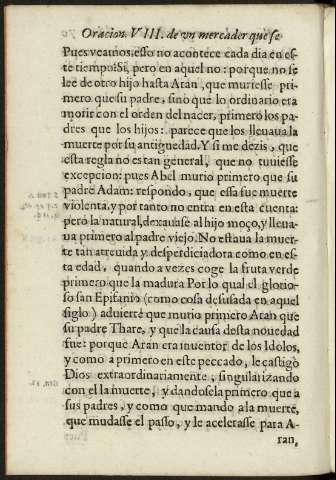 Oracion VIII. de vn mercader que se
Pues veamos: esso no acontece cada dia en es-
te tiempo? Si, pero en aquel no: porque no se
lee de otro hijo hasta Arān, que muriesse pri-
mero que su padre, sino que lo ordinario era
morir con el orden del nacer, primero los pa-
dres que los hijos: parece que los lleuaua la
muerte por su antiguedad. Y si me dezis, que
esta regla no es tan general, que no tuuiesse
excepcion: pues Abel murio primero que su
padre Adam: respondo, que essa fue muerte
violenta, y por tanto no entra en esta cuenta:
pero la natural, dexauase al hijo moço, y lleua-
ua primero al padre viejo. No estaua la muer-
te tan atreuida y desperdiciadora como en es-
ta edad, quando a vezes coge la fruta verde
primero que la madura Por lo qual el glorio-
so san Epifanio (como cosa desusada en aquel
siglo) aduierte que murio primero Aran que
su padre Thare, y que la causa desta nouedad
fue: porque Aran era inuentor de los Idolos,
y como a primero en este peccado, le castigò
Dios extraordinariamente, singularizando
con el la muerte, y dandosela primero que a
sus padres, y como que mando a la muerte,
que mudasse el passo, y le acelerasse para A-
ran,